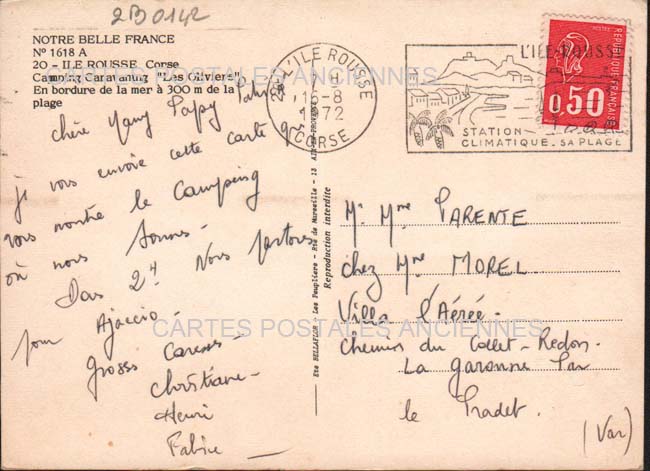 2B0142
NOTRE BELLE FRANCE
Nº 1618 A
20 - ILE ROUSSE Corse
Camping Caravaning "Les Oliviers"
En bordure de la mer à 300 m de la
plage
chère Mamy Papy
je vous envoie cette carte qui
vous montre le Camping
où nous sommes
Dans 2 Nous partons
pour Ajaccio -
Grosses Caresses -
Christiane -
Henri
Fabrice -
Ets BELLAFLOR - Les Peupliers - Rte de Marseille - 13 AIX-EN-PROVENCE
Reproduction interdite
L'ILE ROUSSE
16-8
1972
CORSE
L'ILE-ROUSSE
STATION
CLIMATIQUE. SA PLAGE
REPUBLIQUE FRANÇAISE
0,50
Mr Mme PARENTE
chez Mme MOREL
Villa l'Aérée -
Chemin du Collet-Redon -
La Garonne Par
le Pradet.
(Var)
CARTES POSTALES ANCIENNES
CARTES POSTALES ANCIENNES